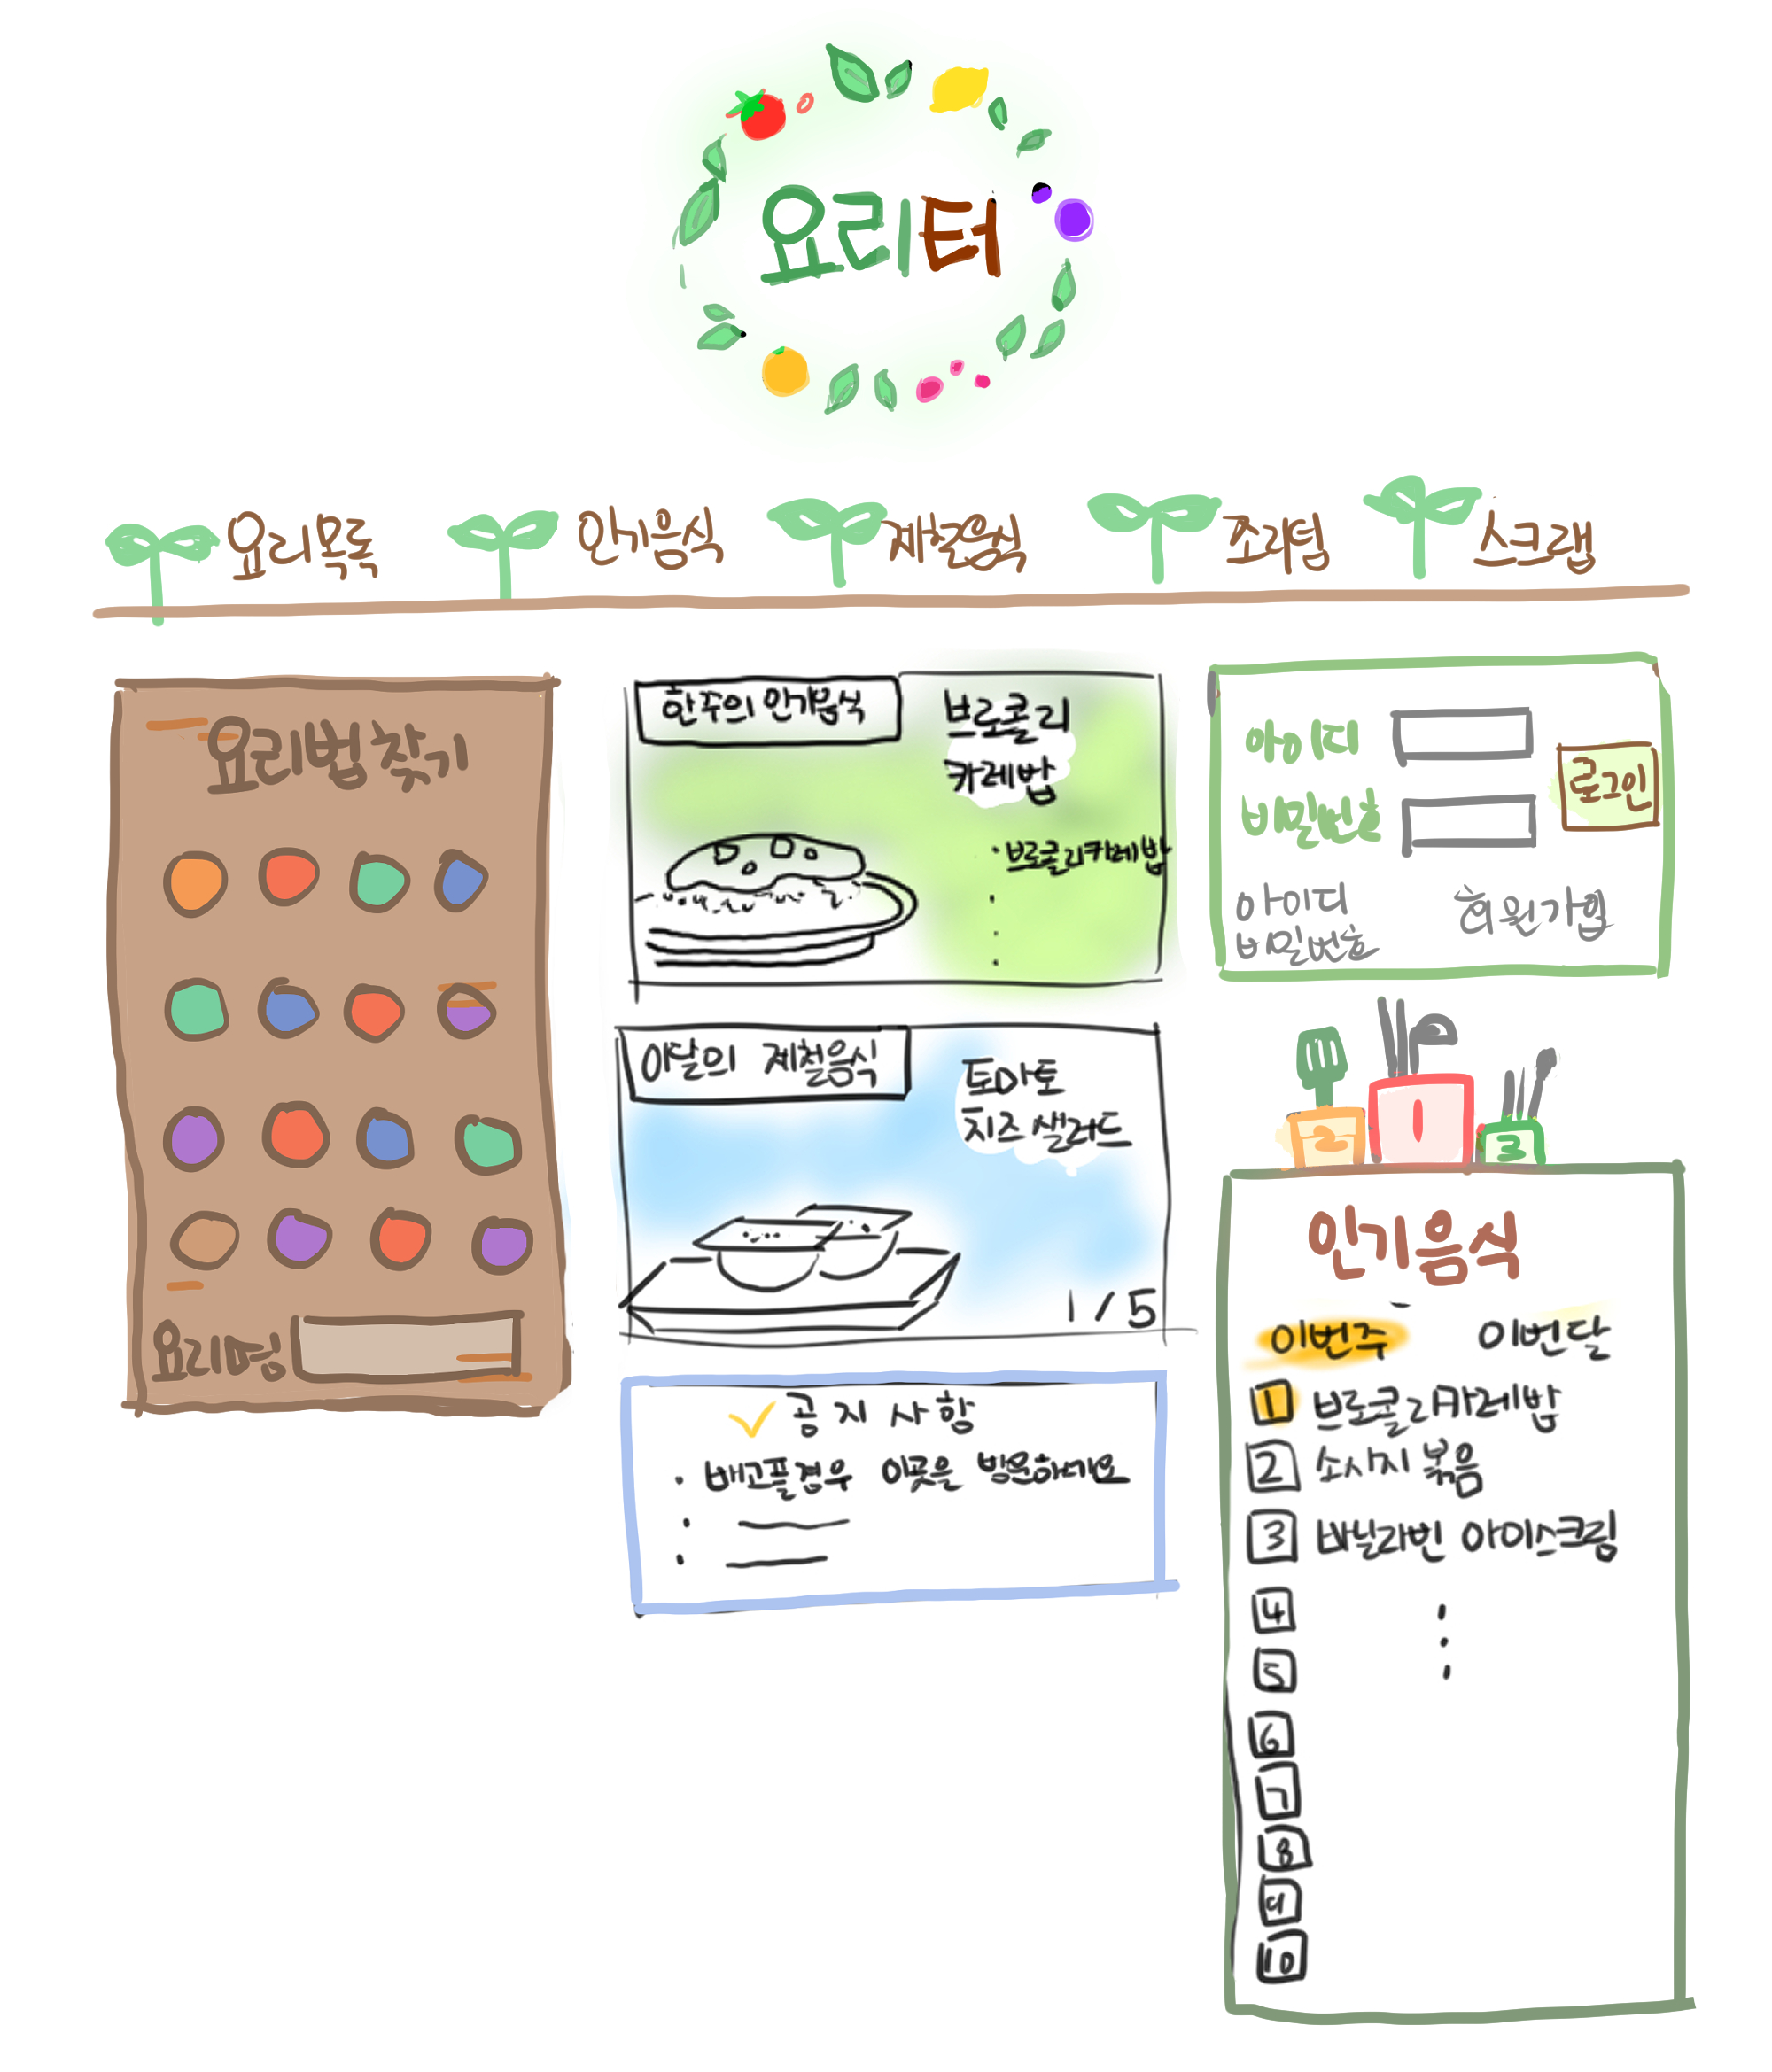 요리터
요리목록
인기음식
제철음식
조리팁
스크랩
요리법 찾기
요리명
한주의 인기음식
브로콜리
카레밥
· 브로콜리카레밥
이달의 제철음식
토마토
치즈샐러드
1 / 5
공지사항
· 배고플경우 이곳을 방문하세요
아이디
비밀번호
로그인
아이디
비밀번호
회원가입
2 1 3
인기음식
이번주 이번달
1 브로콜리카레밥
2 소시지 볶음
3 바닐라빈 아이스크림
4
5
6
7
8
9
10